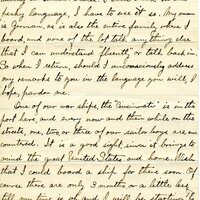 party language, I have to use it so. My man
is German, as is also the entire family where I
board, and none of the lot talk anything else
that I can understand fluently or talk back in.
So when I return, should I unconsciously address
my remarks to you in the language you will, I
hope, pardon me.
One of our war ships, the "Cincinnati" is in the
port here, and every now and then while on the
streets, one, two or three of our sailor boys are en-
countered. It is a good sight, since it brings to
mind the great United States and home. Wish
that I could board a ship for there soon. Of
course there are only 3 months or a little less
till my time is up and I will be starting